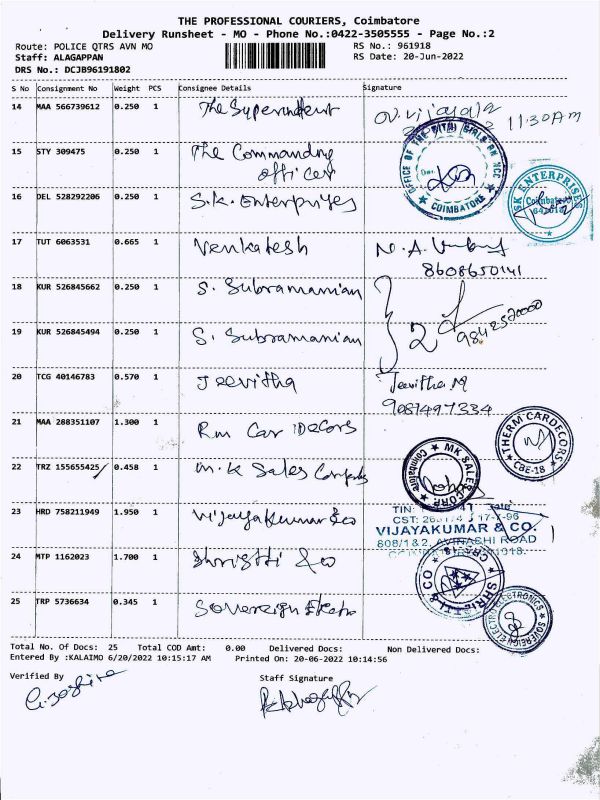 THE PROFESSIONAL COURIERS, Coimbatore
Delivery Runsheet - MO - Phone No.:0422-3505555 - Page No.:2
Route: POLICE QTRS AVN MO RS No.: 961918
Staff: ALAGAPPAN RS Date: 20-Jun-2022
DRS No.: DCJB96191802
S No Consignment No Weight PCS Consignee Details Signature
14 MAA 566739612 0.250 1 The Superindtent
11:30AM
15 STY 309475 0.250 1 The Commanding
officer
COIMBATORE
16 DEL 528292206 0.250 1 S.K. Enterpriyes
SK ENTERPRISES
Coimbatore
17 TUT 6063531 0.665 1 Venkatesh
8608650141
18 KUR 526845662 0.250 1 S. Subramanian
19 KUR 526845494 0.250 1 S. Subramanian 2
9842520000
20 TCG 40146783 0.570 1 Jeevitha Jeevitha M
9087497334
21 MAA 288351107 1.300 1 Rm Car Decors
THERM CARDECORS
CBE-18
22 TRZ 155655425 0.458 1 M.K Sales
MK SALES CORP
Coimbatore
23 HRD 758211949 1.950 1 Vijayakumar & co
TIN:
CST: 17-7-96
VIJAYAKUMAR & CO.
608/1&2, AVINASHI ROAD
24 MTP 1162023 1.700 1 Shristti & co
SHRISTI & CO
25 TRP 5736634 0.345 1 Sovereign
SOVEREIGN ELECTRONICS
Total No. Of Docs: 25 Total COD Amt: 0.00 Delivered Docs: Non Delivered Docs:
Entered By :KALAIMO 6/20/2022 10:15:17 AM Printed On: 20-06-2022 10:14:56
Verified By Staff Signature